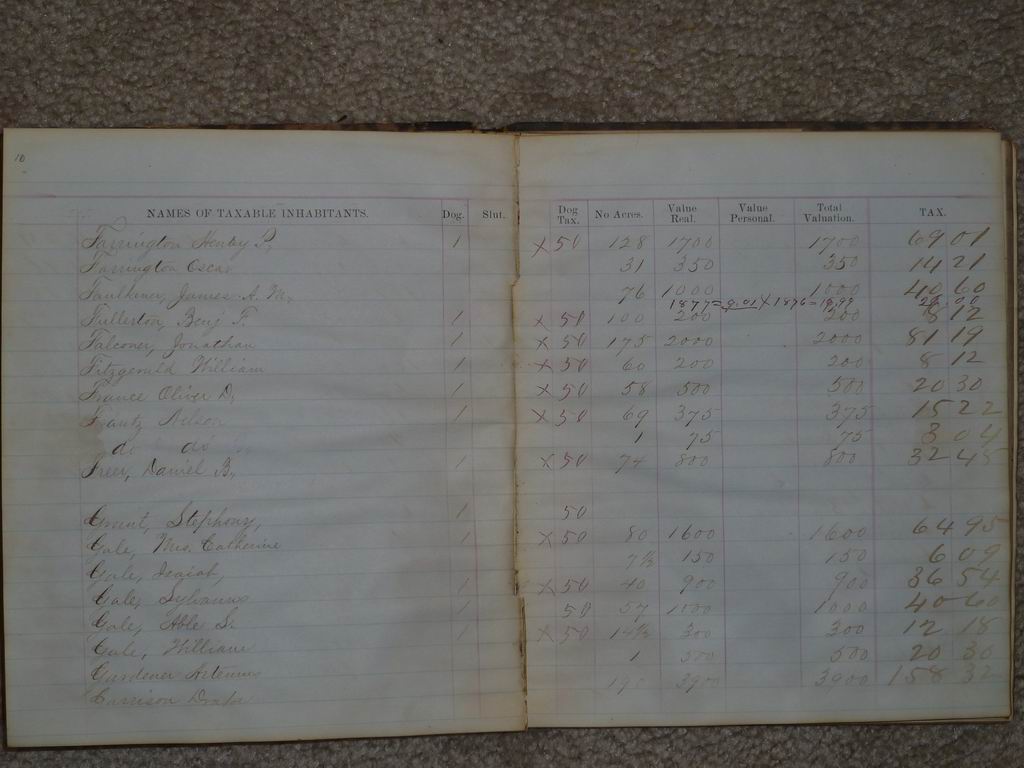 10
NAMES OF TAXABLE INHABITANTS. Dog. Slut. Dog Tax. No Acres. Value Real. Value Personal. Total Valuation. TAX.
Farrington Henry D, 1 X 50 128 1700 1700 69 01
Farrington Oscar 31 350 350 14 21
Faulkner, James A. M, 76 1000 1000 40 60
1877= 8.01 X 1876=
Fullerton, Benj F. 1 X 50 100 200 200 8 12
Falconer, Jonathan 1 X 50 175 2000 2000 81 19
Fitzgerald William 1 X 50 60 200 200 8 12
France Oliver D, 1 X 50 58 500 500 20 30
Frantz Nelson 1 X 50 69 375 375 15 22
do do 1 75 75 3 04
Freer, Daniel B, 1 X 50 74 800 800 32 45
Grunt, Stephony, 1 50
Gale, Mrs. Catherine 1 X 50 80 1600 1600 64 95
Gale, Isaiah, 7½ 150 150 6 09
Gale, Sylvanus 1 X 50 40 900 900 36 54
Gale, Able S. 1 50 57 1000 1000 40 60
Gale, William 1 X 50 14½ 300 300 12 18
Gardener Artemus 1 500 500 20 30
Garrison Drake 190 3900 3900 158 32